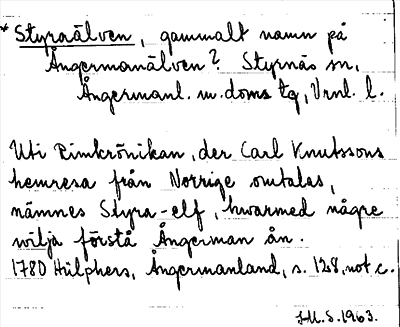 * Styraälven, gammalt namn på
Ångermanälven? Styrnäs sn,
Ångermanl. m. doms tg, Vrnl. l.
Uti Rimkrönikan, der Carl Knutssons
hemresa från Norrige omtales,
nämnes Styra-elf, hwarmed någre
wilja förstå Ångerman ån.
1780 Hülphers, Ångermanland, s. 128, not c.
J.M.S. 1963.